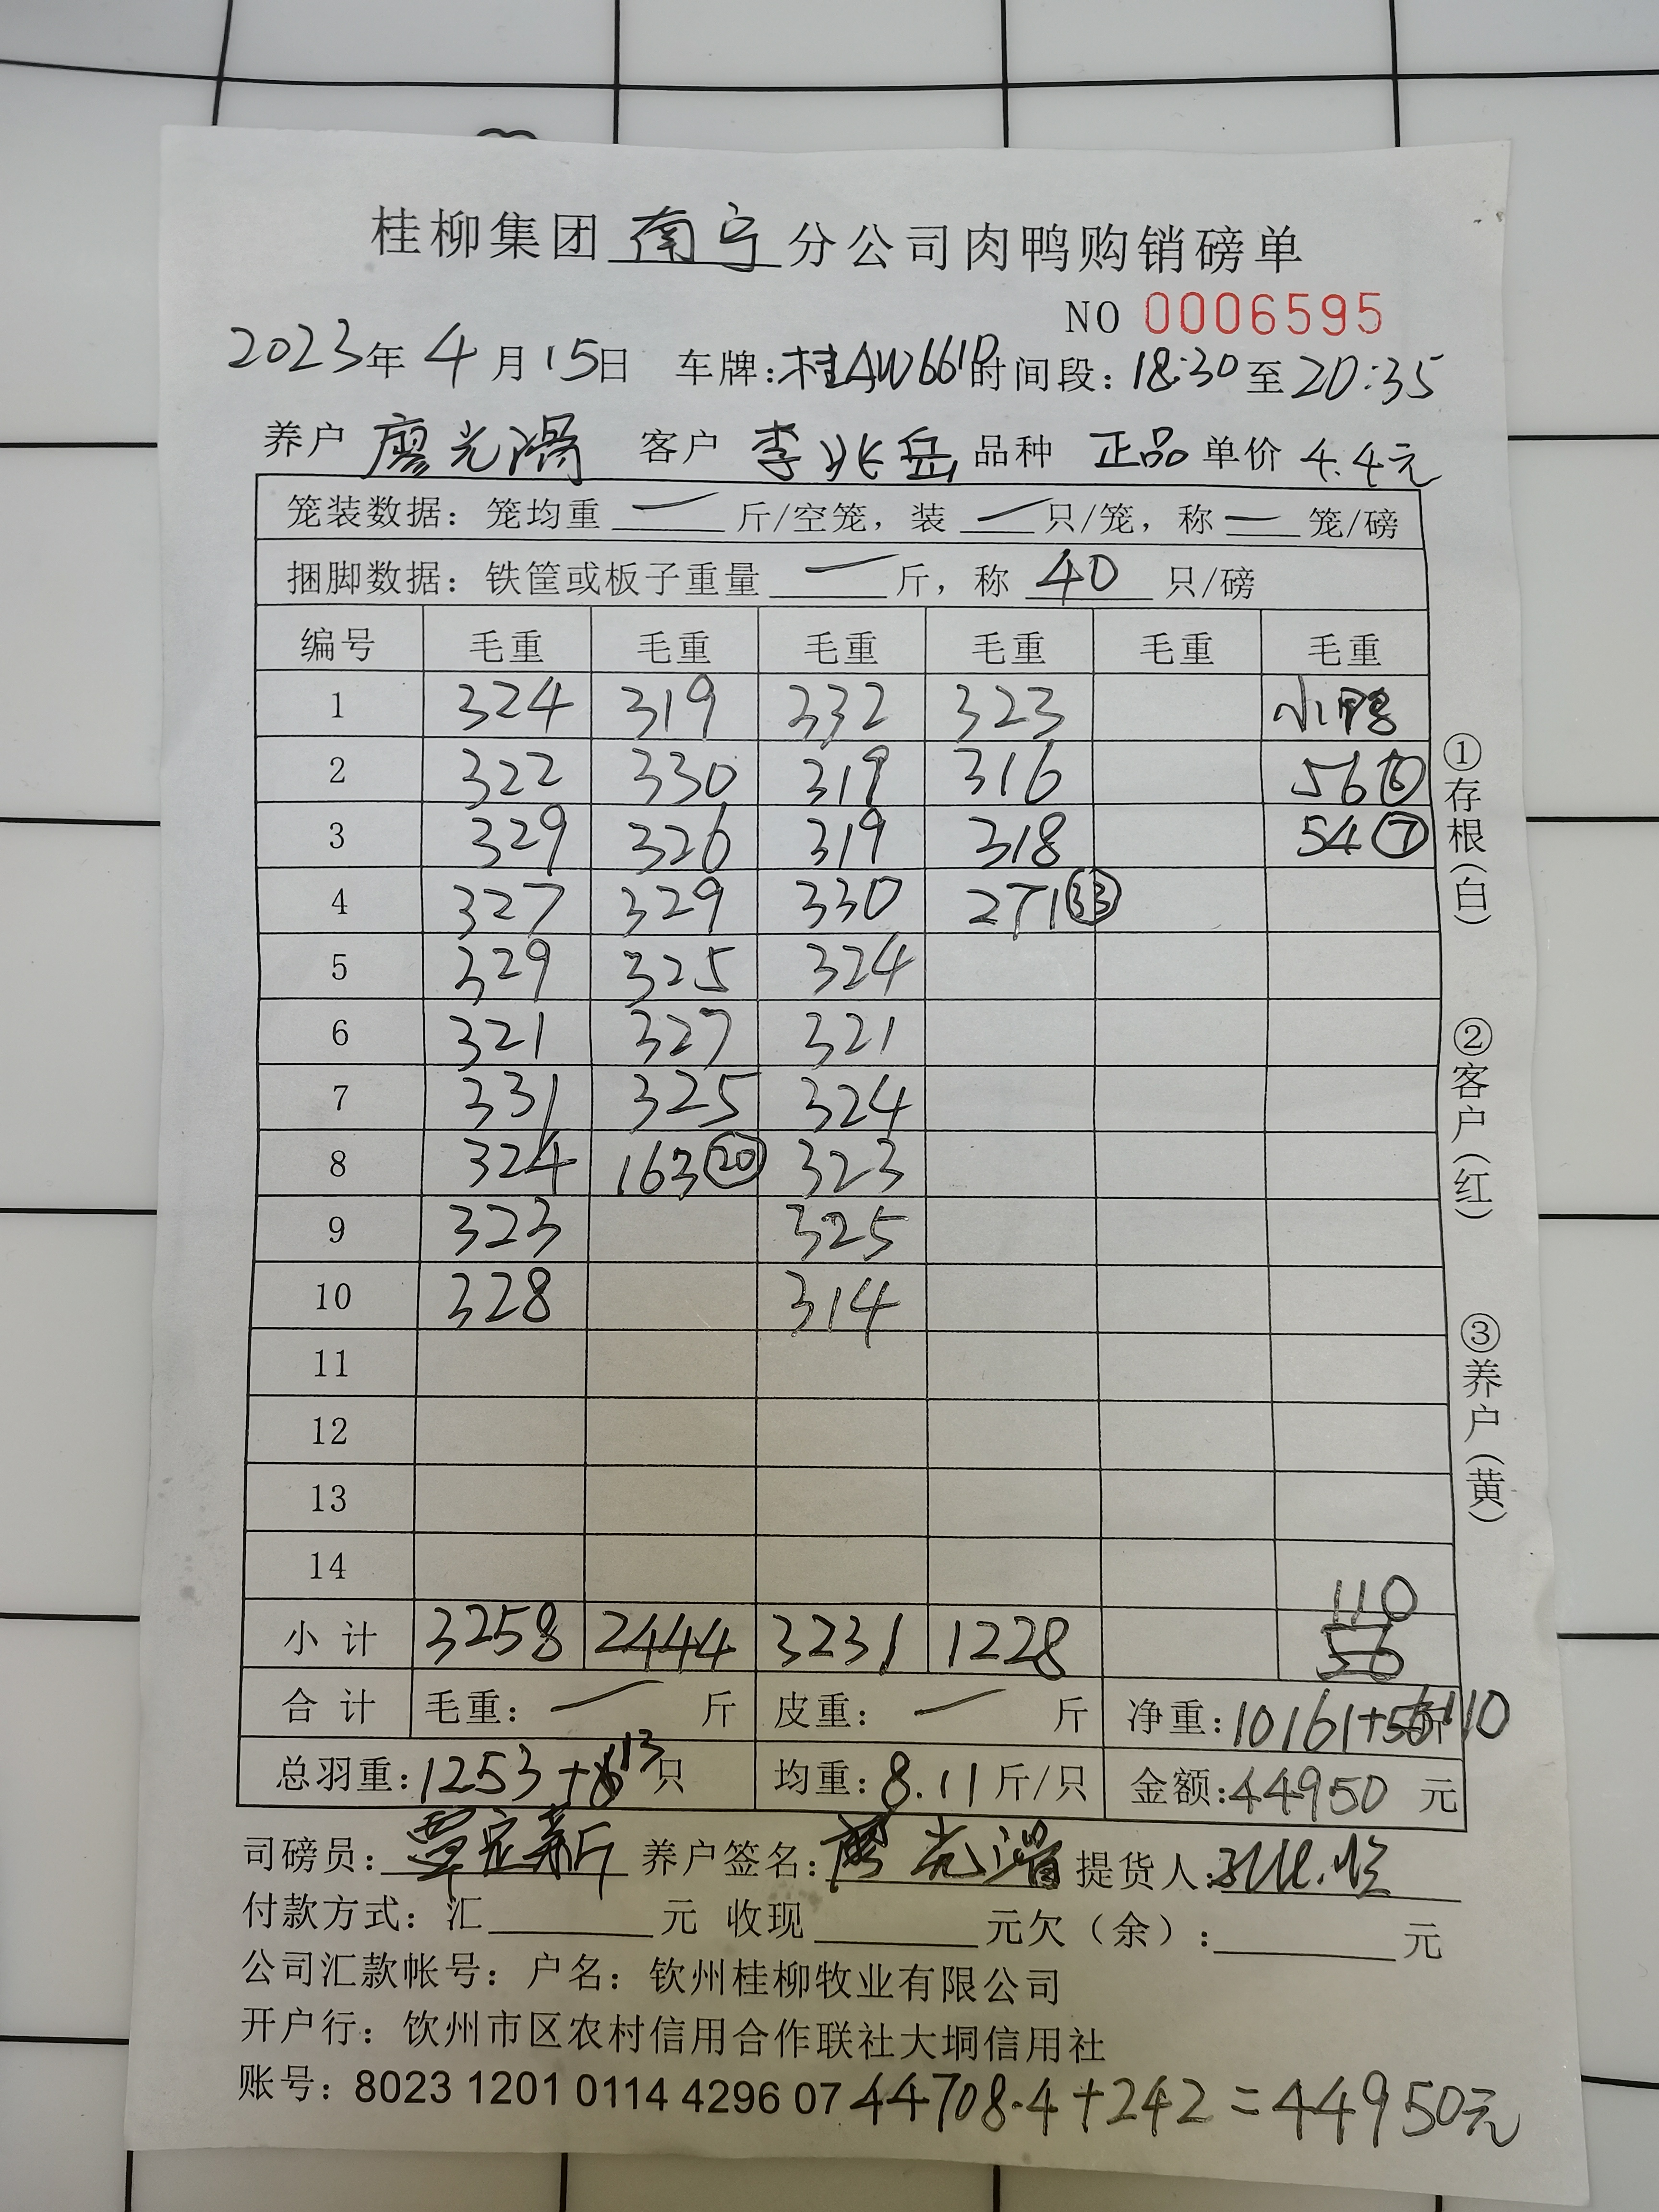 桂柳集团南宁分公司肉鸭购销磅单
NO 0006595
2023年4月15日 车牌:桂AW661D时间段:18:30至20:35
养户 廖光 客户 李兆岳 品种 正品 单价 4.4元
笼装数据:笼均重 — 斤/空笼,装 — 只/笼,称 — 笼/磅
捆脚数据:铁筐或板子重量 — 斤,称 40 只/磅
编号 毛重 毛重 毛重 毛重 毛重 毛重
1 324 319 332 323 小鸭
2 322 330 319 316 56⑥
3 329 326 319 318 54⑦
4 327 329 330 271㉝
5 329 325 324
6 321 327 321
7 331 325 324
8 324 163⑳ 323
9 323 325
10 328 314
11
12
13
14
110
小计 3258 2444 3231 1228 56
合计 毛重: — 斤 皮重: — 斤 净重:10161+56110斤
总羽重:1253+613只 均重:8.11斤/只 金额:44950 元
司磅员:覃定新 养户签名:廖光 提货人:
付款方式:汇 元 收现 元欠(余): 元
公司汇款帐号:户名:钦州桂柳牧业有限公司
开户行:钦州市区农村信用合作联社大垌信用社
账号:8023 1201 0114 4296 07 44708.4+242=44950元
①存根(白)
②客户(红)
③养户(黄)